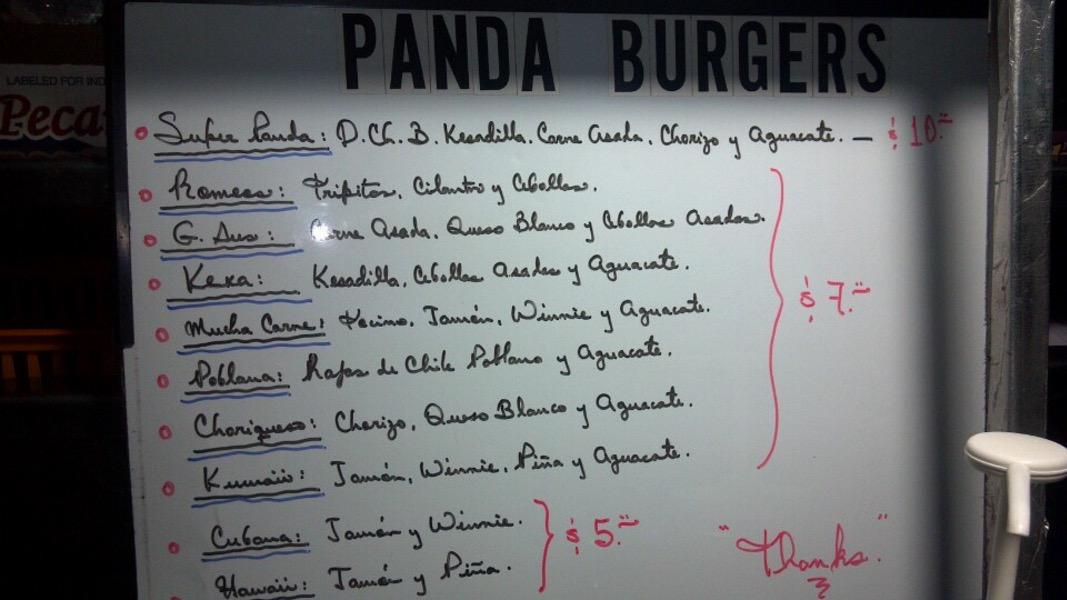 PANDA BURGERS
LABELED FOR IND
Peca
Super Panda: D.Ch.B. Kesadilla. Carne Asada. Chorizo y Aguacate. — $10.=
Romeo: Tripitas, Cilantro y Cebollas.
Carne Asada. Queso Blanco y Cebollas Asadas.
Kexa: Kesadilla, Cebollas Asadas y Aguacate.
Mucha Carne: Tocino, Jamón, Winnie y Aguacate.
$7.=
Poblana: Rajas de Chile Poblano y Aguacate.
Choriqueso: Chorizo, Queso Blanco y Aguacate.
Jamón, Winnie, Piña y Aguacate.
Cubana: Jamón y Winnie.
$5.=
Hawaii: Jamón y Piña.
"Thanks."